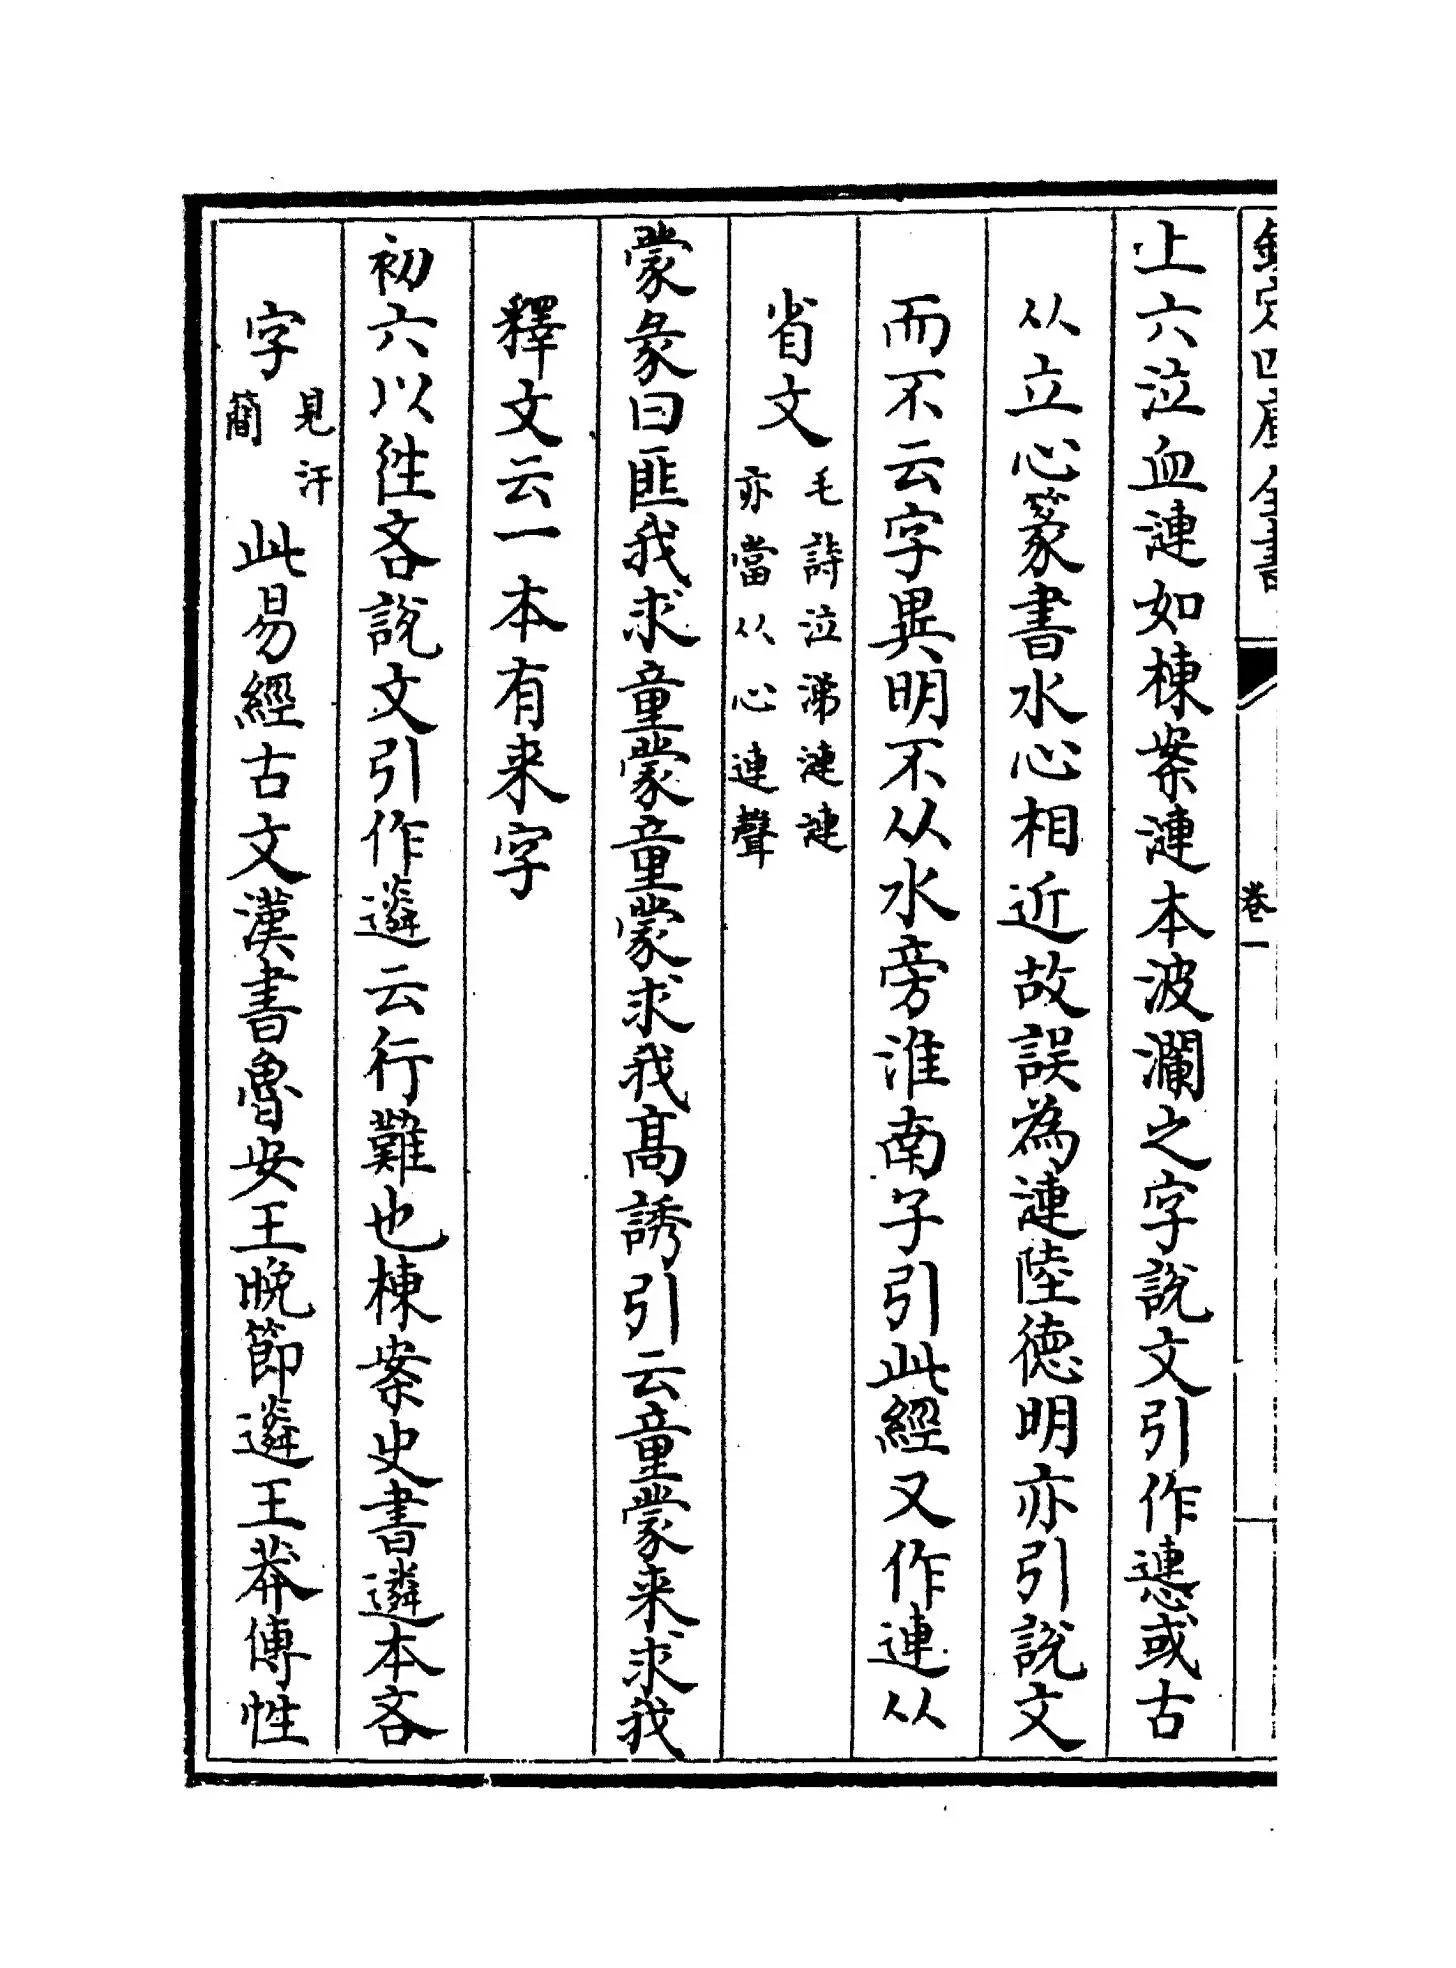 欽定四庫全書
卷一
上六泣血漣如棟案漣本波瀾之字說文引作㦁或古
从立心篆書水心相近故誤為漣陸德明亦引說文
而不云字異明不从水旁淮南子引此經又作連从
省文毛詩泣涕漣漣
亦當从心連聲
蒙彖曰匪我求童蒙童蒙求我高誘引云童蒙来求我
釋文云一本有来字
初六以徃吝說文引作遴云行難也棟案史書遴本吝
字見汗
簡此易經古文漢書魯安王晚節遴王莽傳性